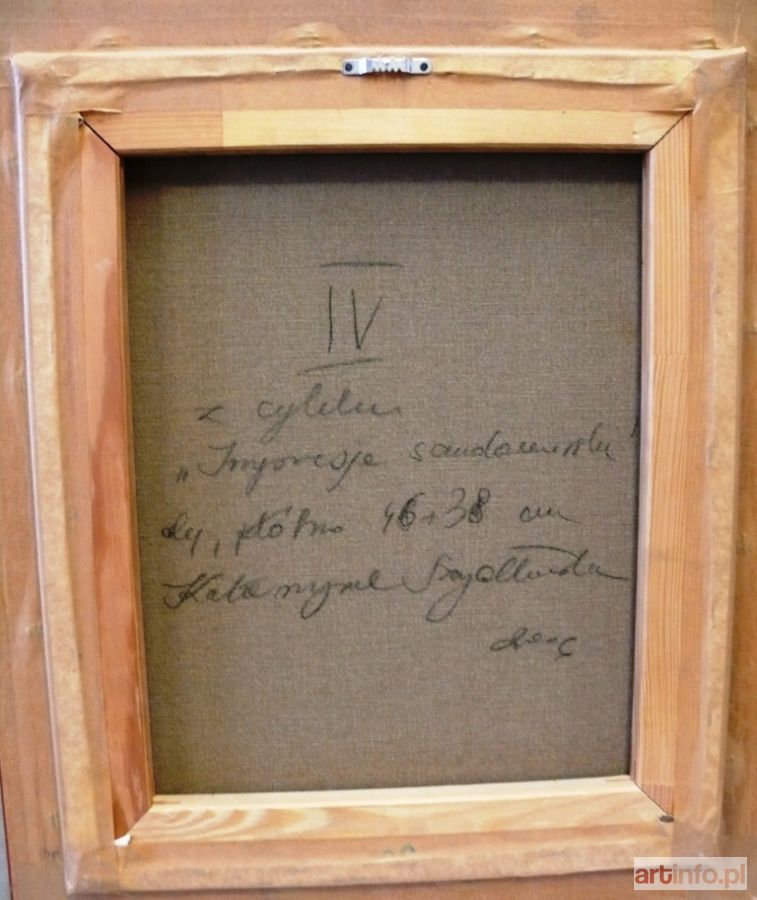 IV
z cyklu
„Impresje sandomierskie"
olej, płótno 46x38 cm
Katarzyna
artinfo.pl